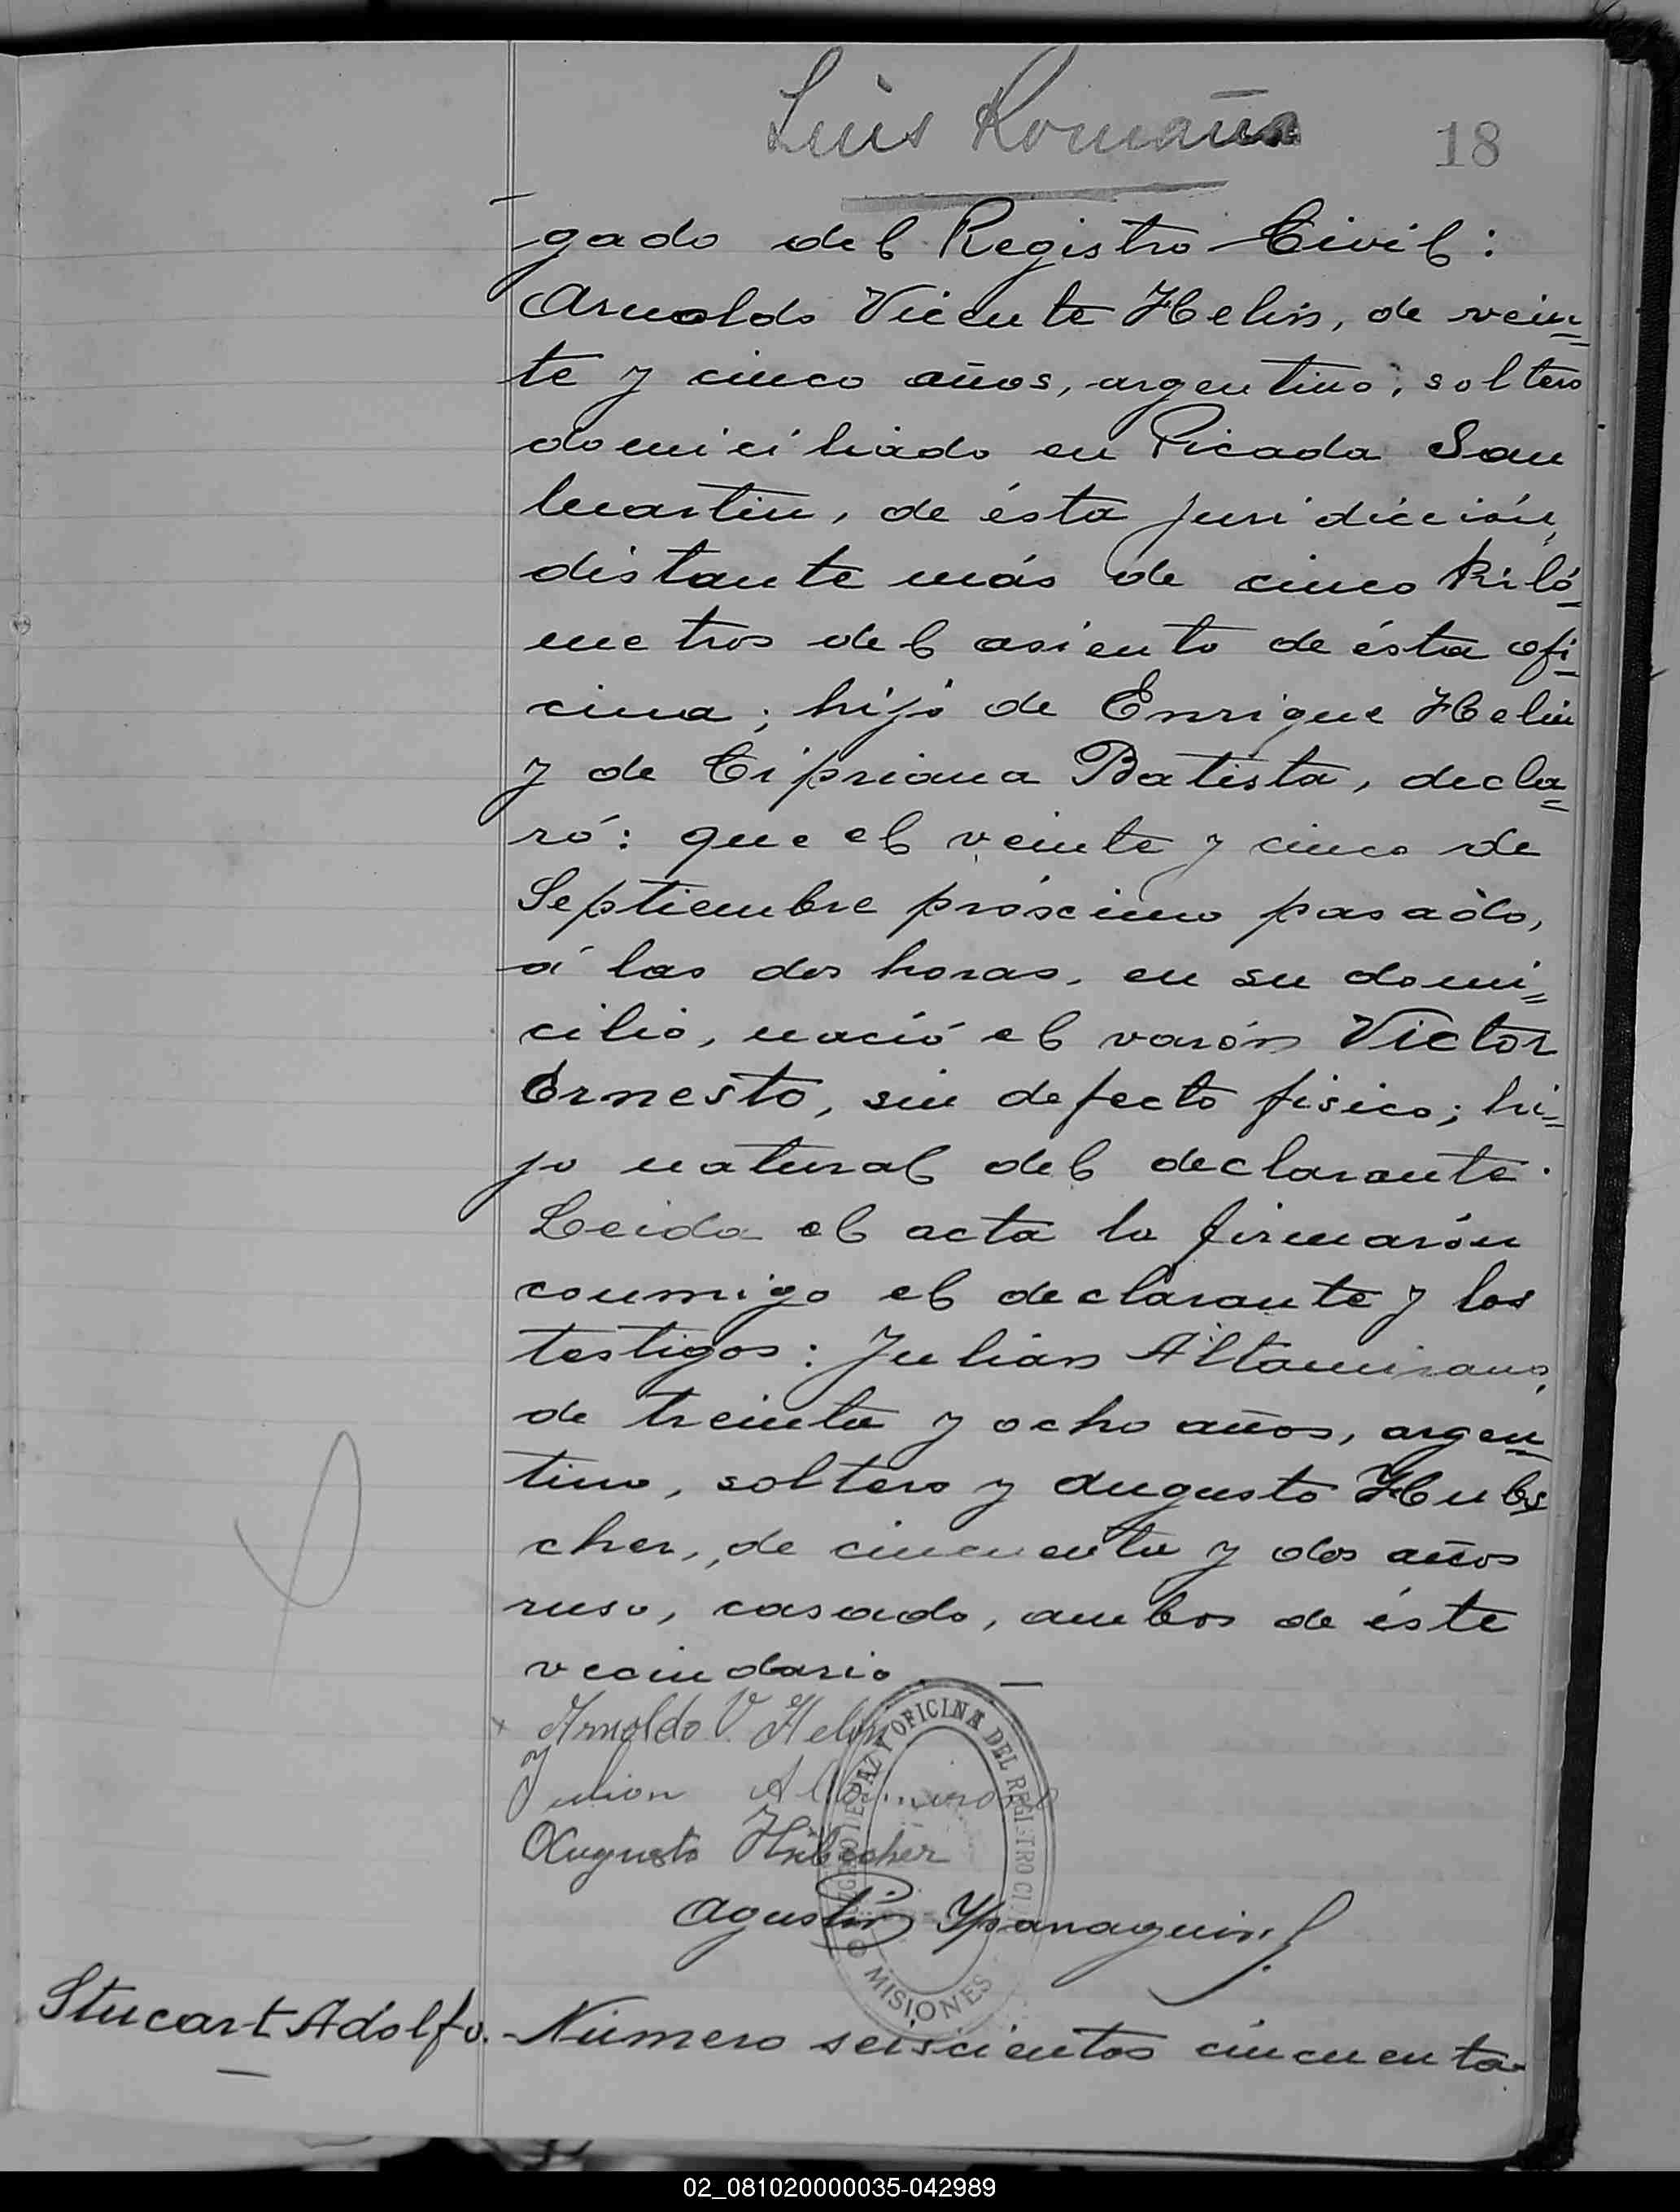 Luis Romaña
18
gado del Registro Civil:
Arnoldo Vicente Helin, de vein=
te y cinco años, argentino, soltero
domiciliado en Picada San
Martin, de ésta juridicción,
distante más de cinco kiló-
metros del asiento de ésta ofi-
cina; hijo de Enrique Helin
y de Cipriana Batista, decla=
ró: que el veinte y cinco de
Septiembre próscimo pasado,
á las dos horas, en su domi=
cilio, nació el varón Victor
Ernesto, sin defecto fisico; hi=
jo natural del declarante.
Leida el acta la firmarón
conmigo el declarante y los
testigos: Julián Altamirano,
de treinta y ocho años, argen=
tino, soltero y Augusto Hubs
cher, de cincuenta y dos años
ruso, casado, ambos de éste
vecindario. —
Arnoldo V. Helin
Julian Altamirano
Augusto Hübscher
Agustin
JUZGADO DE PAZ Y OFICINA DEL REGISTRO CI
MISIONES
Stucart Adolfo. - Número seiscientos cincuenta
02_081020000035-042989